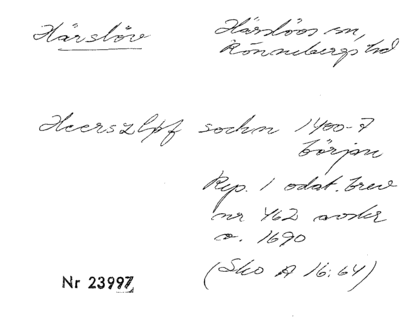 Härslöv
Härslövs sn,
Rönnebergs hd
Heerszlöf sochn 1400-t
början
Rep. 1 odat. brev
nr 462 avskr
o. 1690
(Sko A 16:64)
Nr 23997